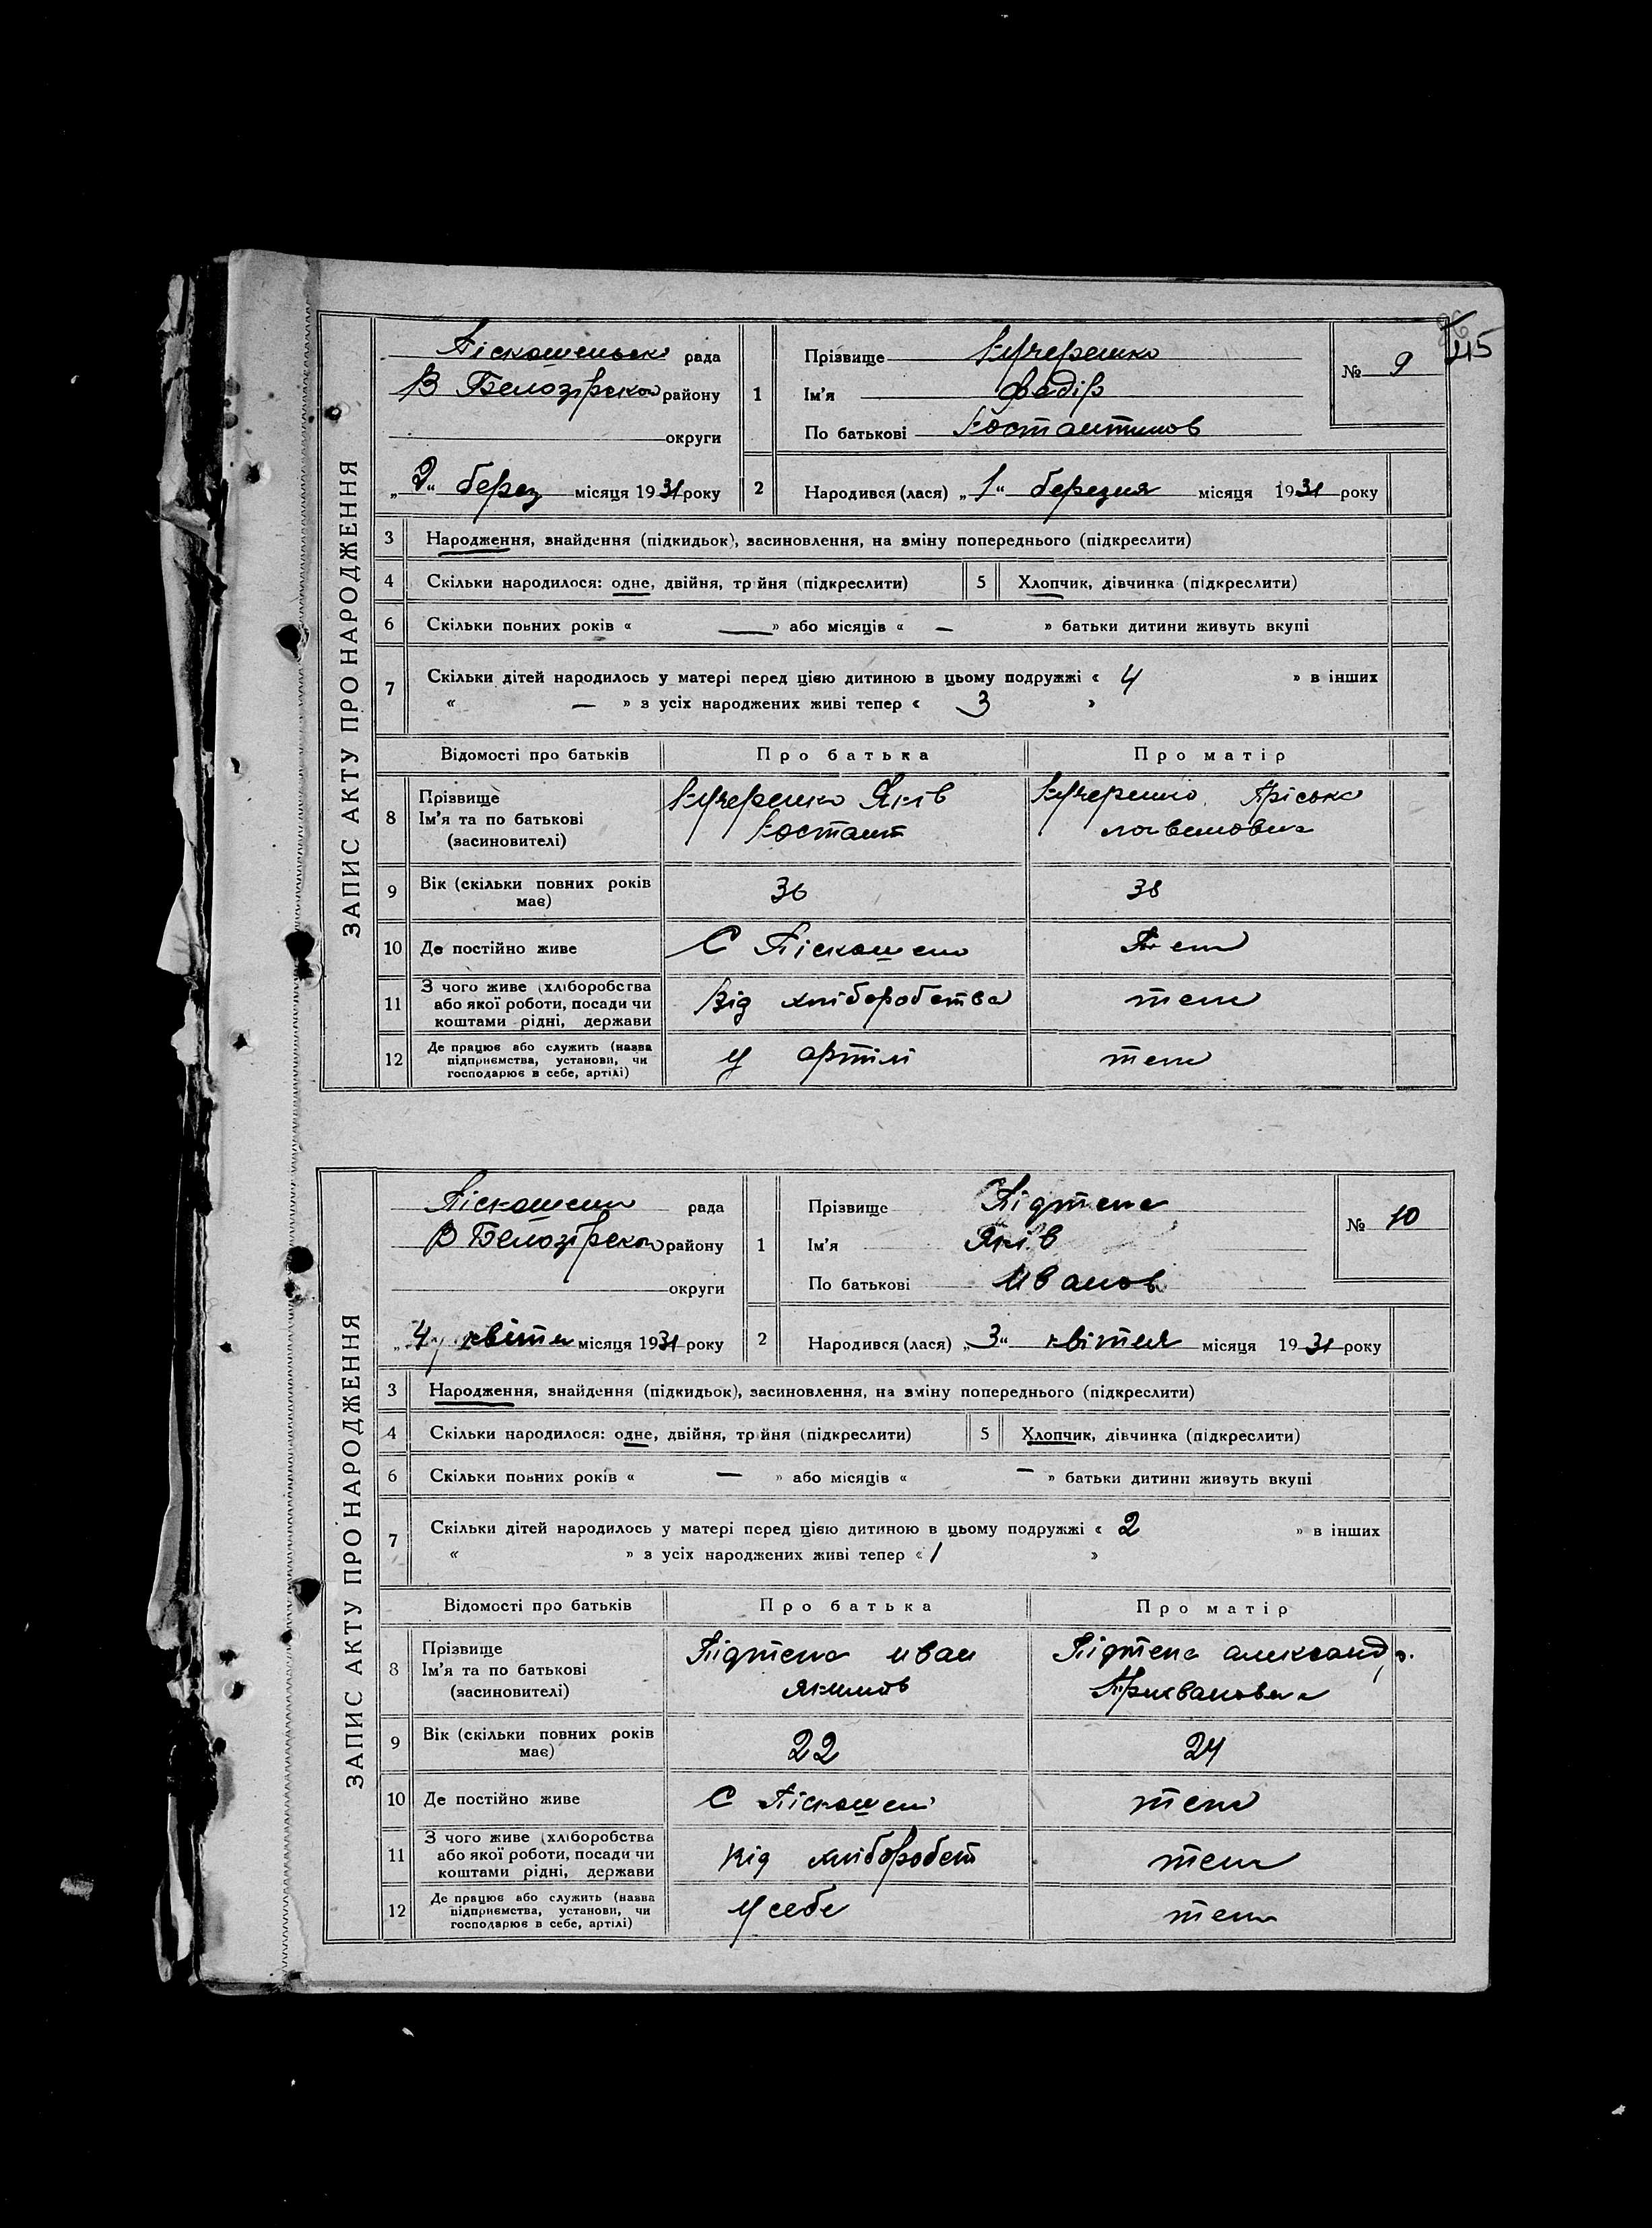 ЗАПИС АКТУ ПРО НАРОДЖЕННЯ
Піскошенської рада
В Белозірсков району
округи
„2“ берез місяця 1931 року
1
Прізвище Кучеренко
Ім'я Федір
По батькові Костантинов
№ 9
245
2
Народився (лася) „1“ березня місяця 1931 року
3 Народження, знайдення (підкидьок), засиновлення, на зміну попереднього (підкреслити)
4 Скільки народилося: одне, двійня, трійня (підкреслити) 5 Хлопчик, дівчинка (підкреслити)
6 Скільки повних років « — » або місяців « — » батьки дитини живуть вкупі
7 Скільки дітей народилось у матері перед цією дитиною в цьому подружжі « 4 » в інших
« — » з усіх народжених живі тепер « 3 »
Відомості про батьків Про батька Про матір
8 Прізвище
Ім'я та по батькові
(засиновителі)
Кучеренко Яків
Костант
Кучеренко Аріська
9 Вік (скільки повних років
має)
36
38
10 Де постійно живе С Піскошено теж
11 З чого живе (хліборобства
або якої роботи, посади чи
коштами рідні, держави
Від хліборобства теж
12 Де працює або служить (назва
підприємства, установи, чи
господарює в себе, артілі)
У артілі теж
ЗАПИС АКТУ ПРО НАРОДЖЕННЯ
Піскошени рада
В Белозірсков району
округи
„4“ квітн місяця 1931 року
1
Прізвище Підтепа
Ім'я Яків
По батькові Иванов
№ 10
2
Народився (лася) „3“ квітня місяця 1931 року
3 Народження, знайдення (підкидьок), засиновлення, на зміну попереднього (підкреслити)
4 Скільки народилося: одне, двійня, трійня (підкреслити) 5 Хлопчик, дівчинка (підкреслити)
6 Скільки повних років « — » або місяців « — » батьки дитини живуть вкупі
7 Скільки дітей народилось у матері перед цією дитиною в цьому подружжі « 2 » в інших
« » з усіх народжених живі тепер « 1 »
Відомості про батьків Про батька Про матір
8 Прізвище
Ім'я та по батькові
(засиновителі)
Підтепа Иван
Якимов
Підтепа Александр.
9 Вік (скільки повних років
має)
22
24
10 Де постійно живе С Піскошені теж
11 З чого живе (хліборобства
або якої роботи, посади чи
коштами рідні, держави
Від хлібороbст теж
12 Де працює або служить (назва
підприємства, установи, чи
господарює в себе, артілі)
У себе теж